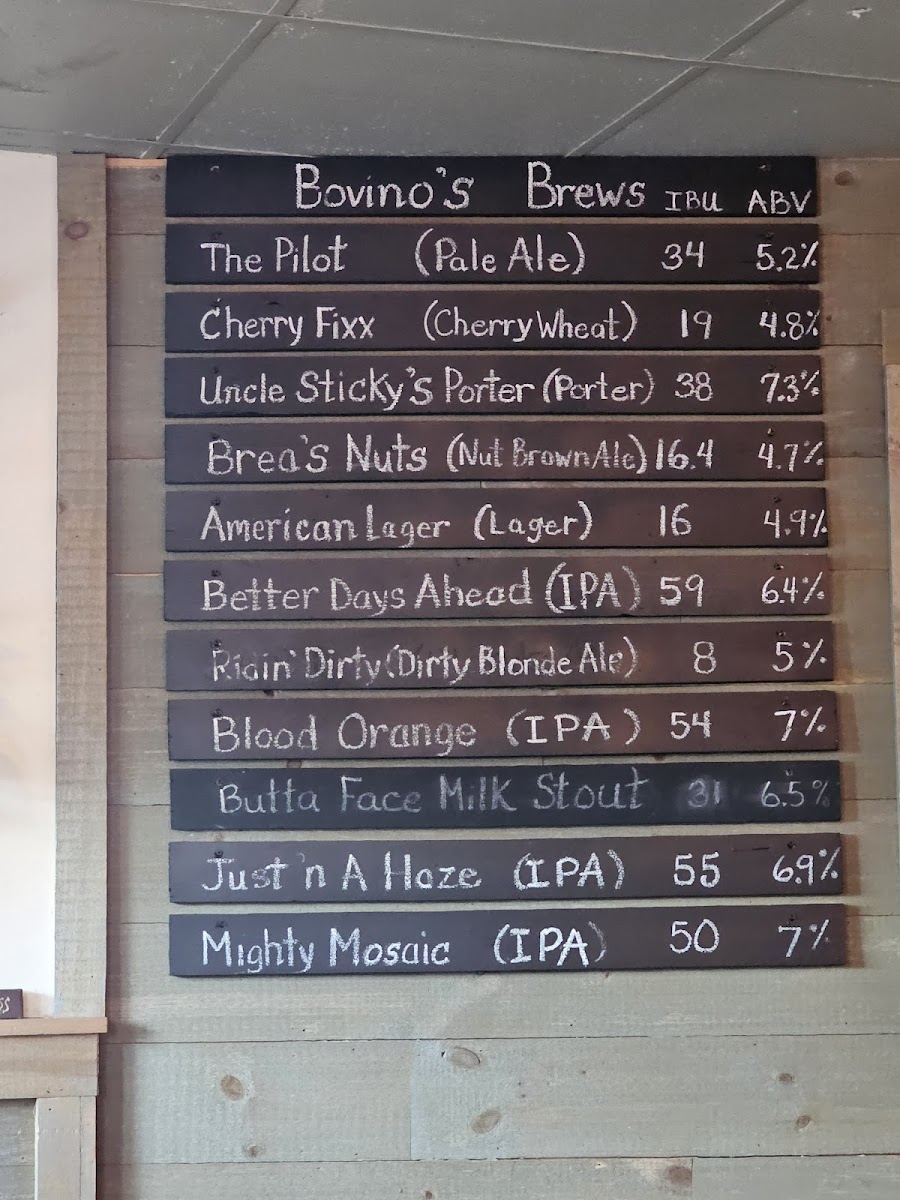 Bovino's Brews IBU ABV
The Pilot (Pale Ale) 34 5.2%
Cherry Fixx (Cherry Wheat) 19 4.8%
Uncle Sticky's Porter (Porter) 38 7.3%
Brea's Nuts (Nut Brown Ale) 16.4 4.7%
American Lager (Lager) 16 4.9%
Better Days Ahead (IPA) 59 6.4%
Ridin' Dirty (Dirty Blonde Ale) 8 5%
Blood Orange (IPA) 54 7%
Butta Face Milk Stout 31 6.5%
Just'n A Haze (IPA) 55 6.9%
Mighty Mosaic (IPA) 50 7%